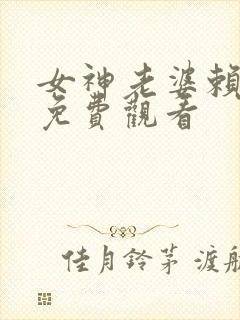 女神老婆賴
免費觀看
佳月鈴茅 渡航